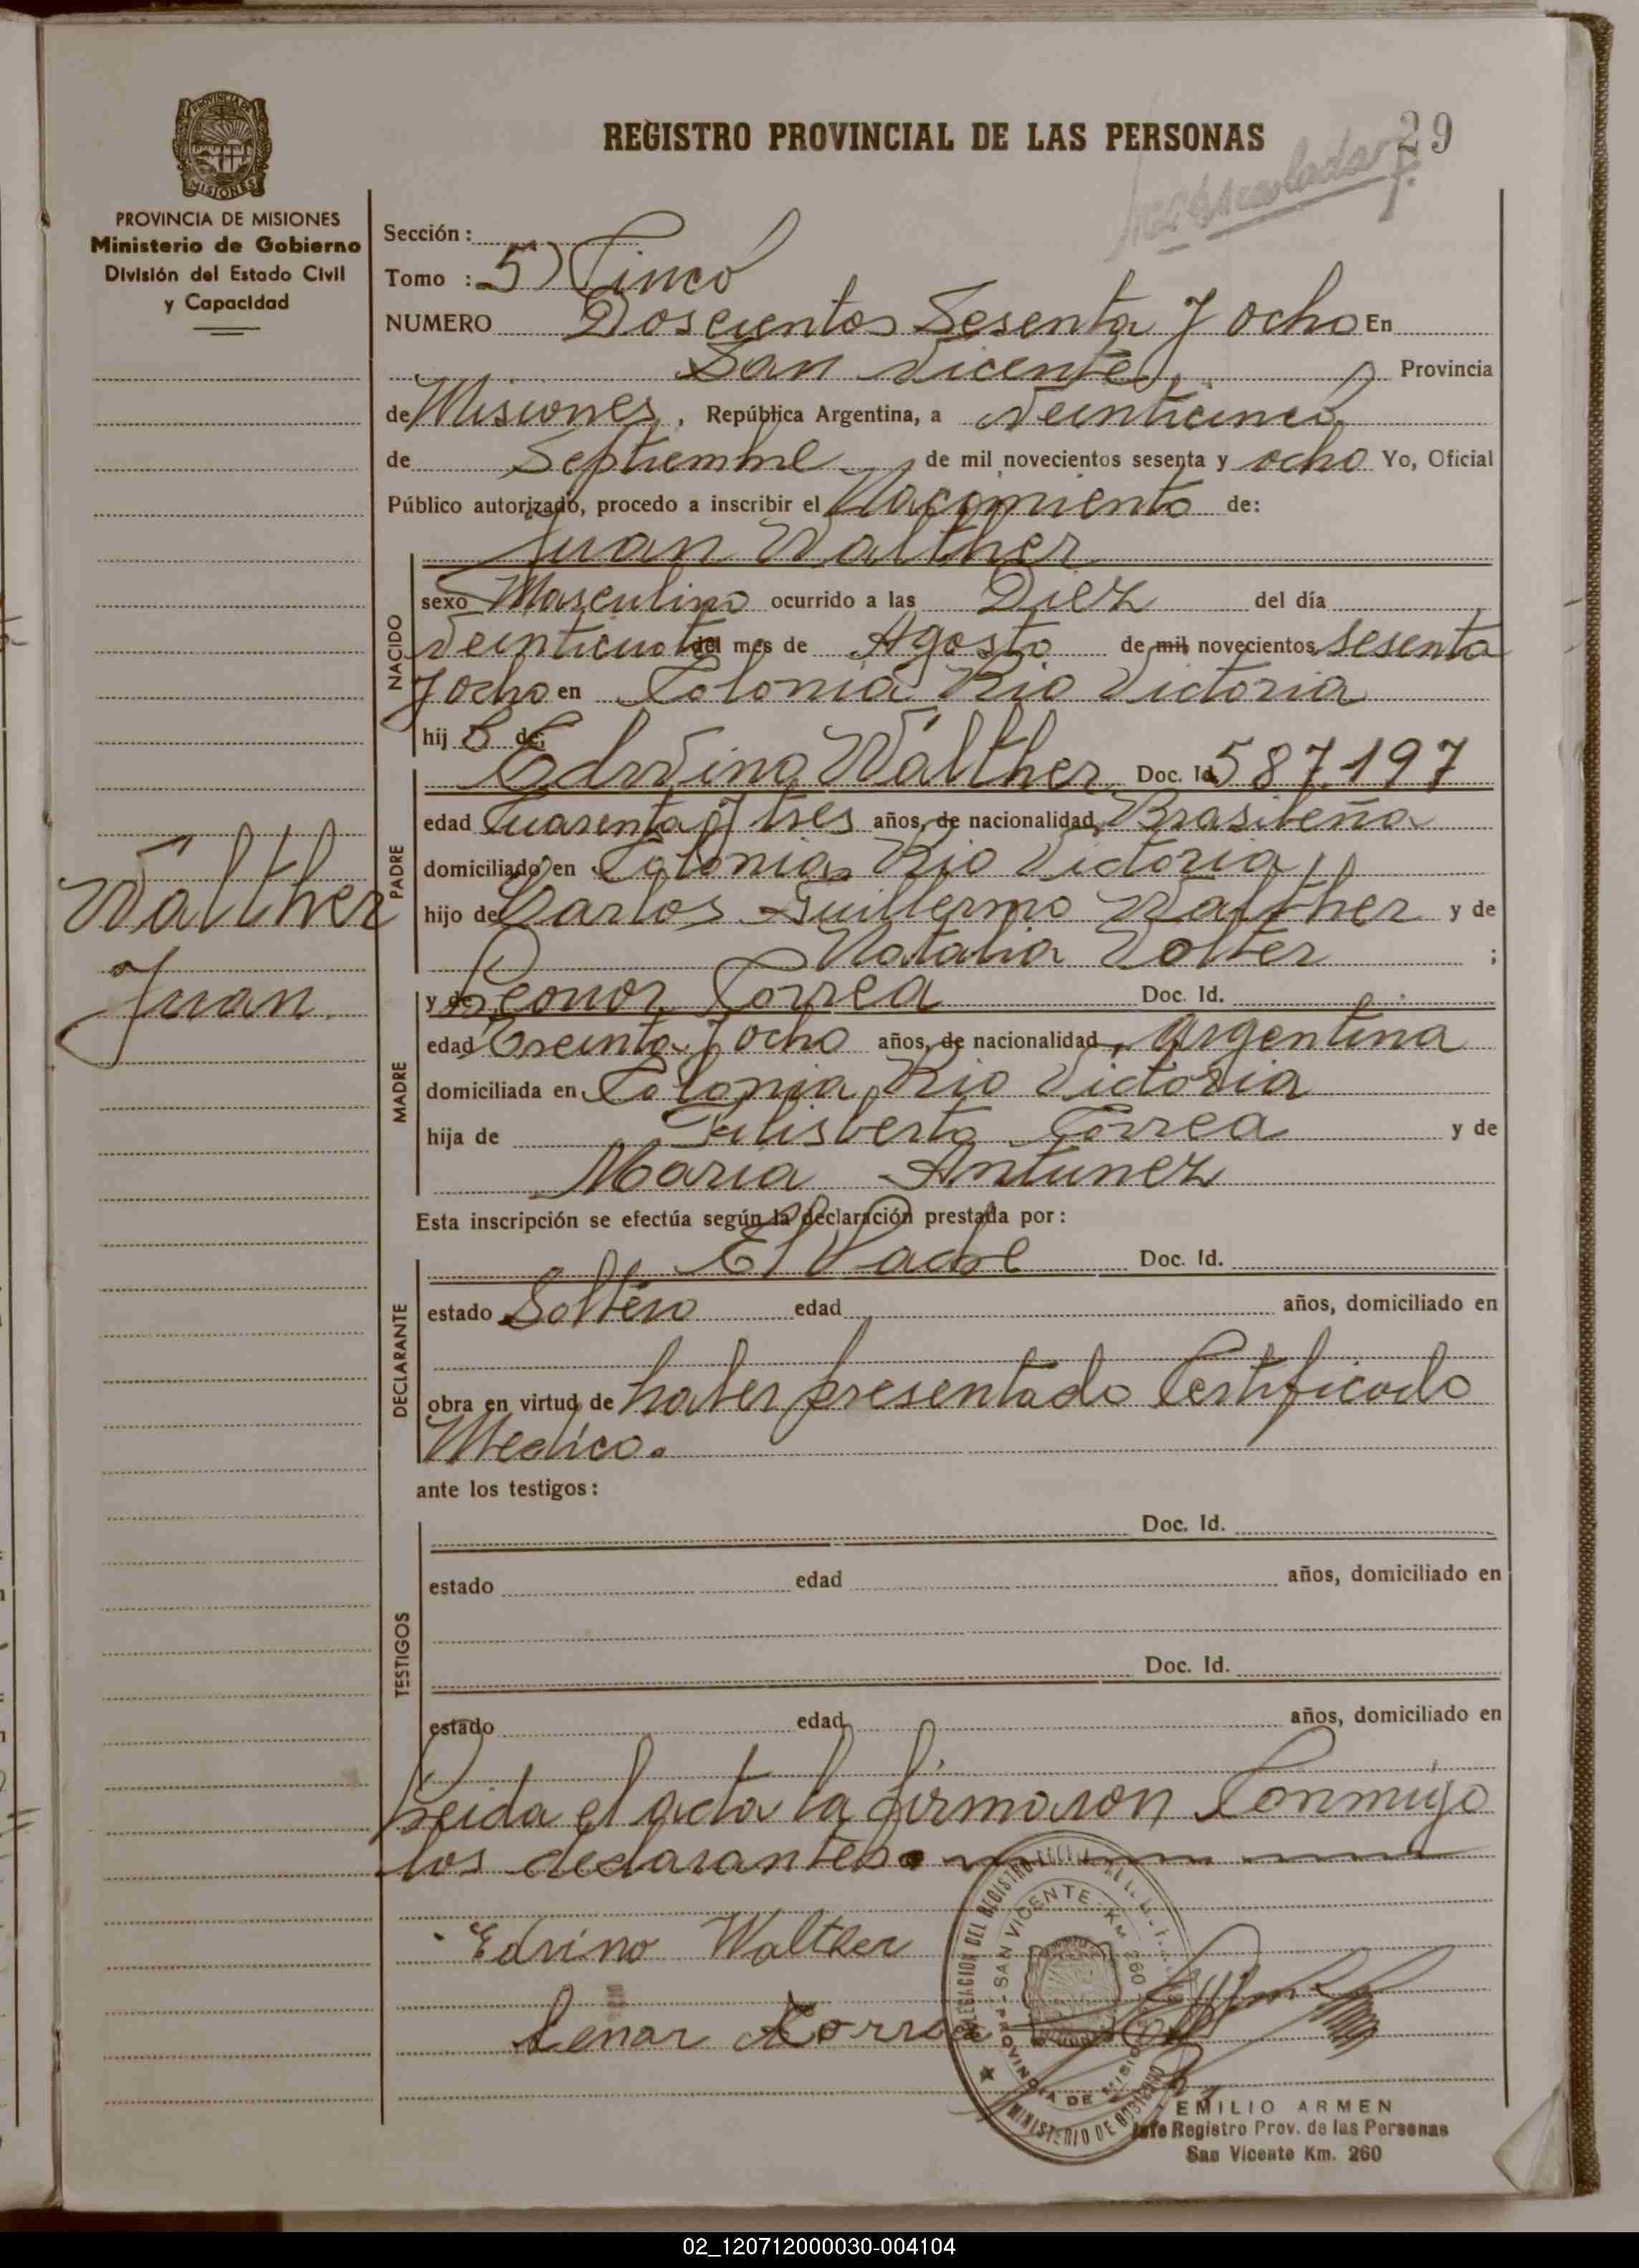 REGISTRO PROVINCIAL DE LAS PERSONAS
29
PROVINCIA DE
MISIONES
PROVINCIA DE MISIONES
Ministerio de Gobierno
División del Estado Civil
y Capacidad
Sección:
Tomo : 5) Cinco
NUMERO Doscientos Sesenta y ocho En
San Vicente, Provincia
de Misiones, República Argentina, a Veinticinco
de Septiembre de mil novecientos sesenta y ocho Yo, Oficial
Público autorizado, procedo a inscribir el Nacimiento de:
Juan Walther
NACIDO
sexo Masculino ocurrido a las Diez del día
del mes de Agosto de mil novecientos Sesenta
y ocho en Colonia Rio Victoria
hij o de:
PADRE
Edvino Walther Doc. Id. 587.197
edad Cuarenta y tres años, de nacionalidad Brasileña
domiciliado en Colonia Rio Victoria
hijo de Carlos Guillermo Walther y de
Natalia Volter ;
MADRE
y de Leonor Correa Doc. Id.
edad Treinta y ocho años, de nacionalidad Argentina
domiciliada en Colonia Rio Victoria
hija de Filisberto Correa y de
Maria Antunez
Esta inscripción se efectúa según la declaración prestada por:
DECLARANTE
El Padre Doc. Id.
estado Soltero edad años, domiciliado en
obra en virtud de haber presentado Certificado
Medico.
ante los testigos:
TESTIGOS
Doc. Id.
estado edad años, domiciliado en
Doc. Id.
estado edad años, domiciliado en
Leida el acta la firmaron Conmigo
los declarantes.
Walther
Juan.
Edvino Walther
Lenor Korrea
DELEGACION DEL REGISTRO
SAN VICENTE - KM 260
PROVINCIA DE MISIONES
MINISTERIO DE GOBIERNO
EMILIO ARMEN
Jefe Registro Prov. de las Personas
San Vicente Km. 260
02_120712000030-004104